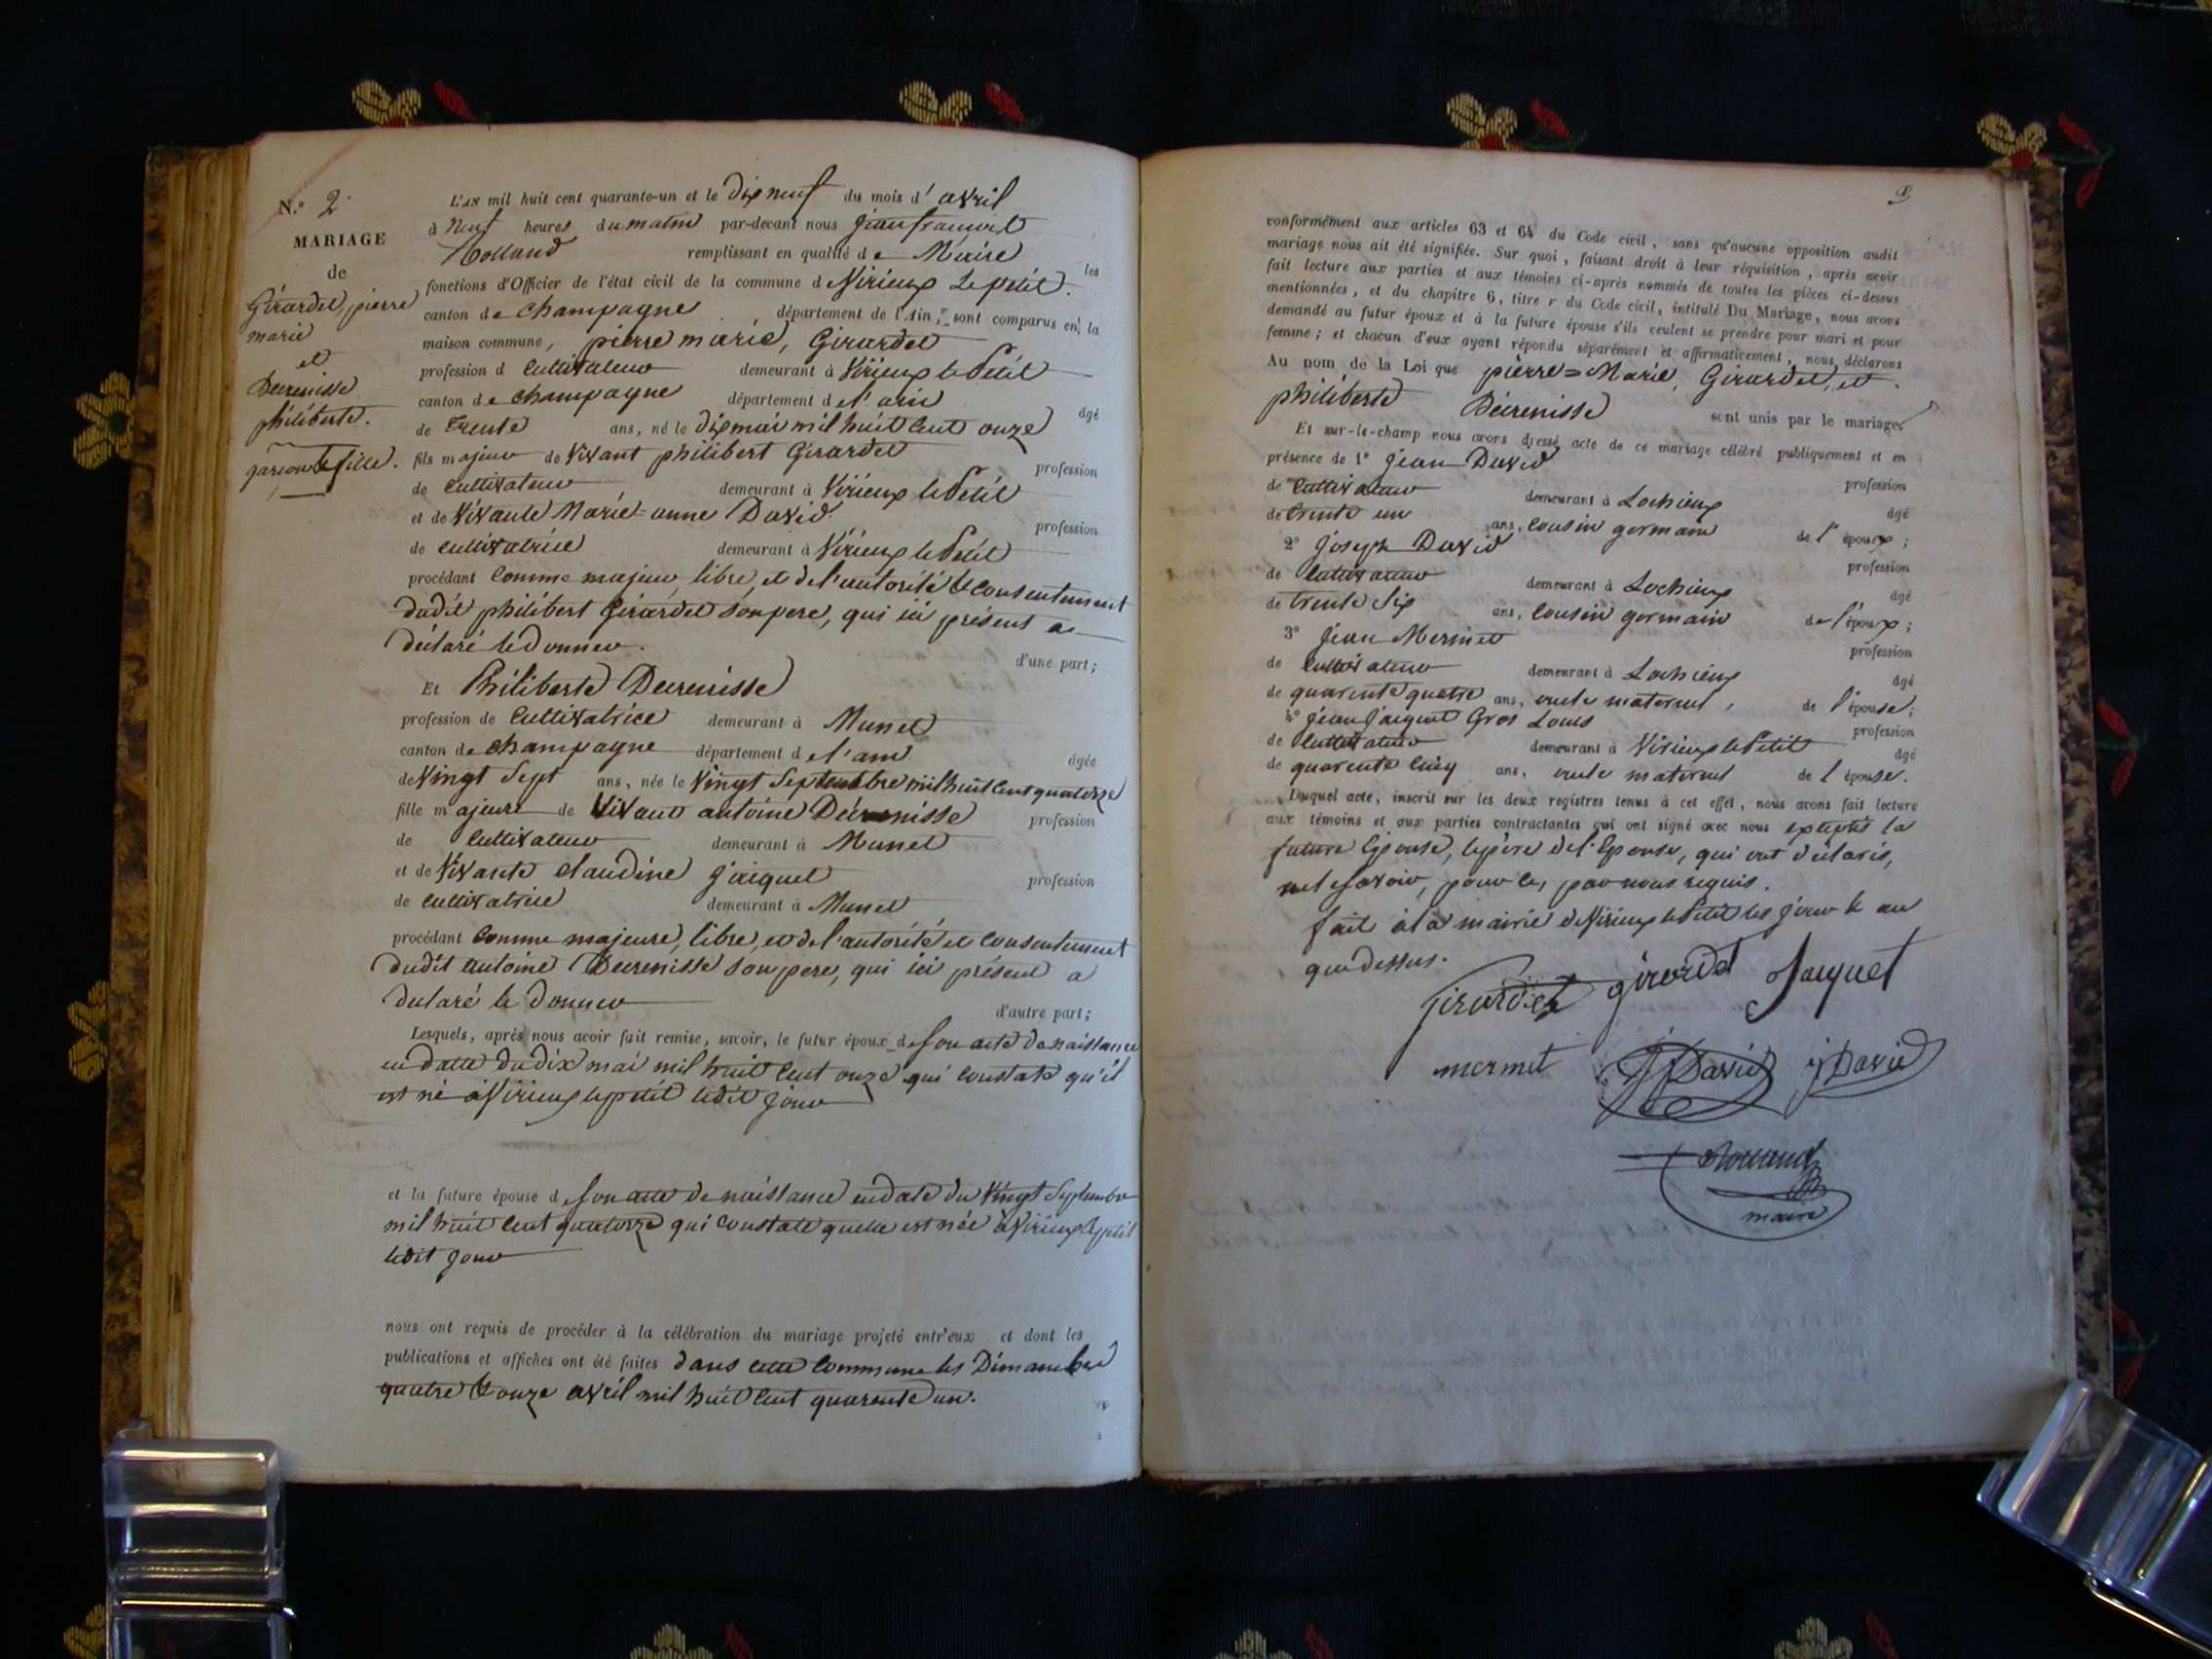 N.° 2
MARIAGE
de
Girardet, pierre
marie
et
Decrenisse
philiberte.
garçon et fille.
L'AN mil huit cent quarante-un et le Dix neuf du mois d' avril
à Neuf heures du matin par-devant nous jean françois
Rolland remplissant en qualité de Maire les
fonctions d'Officier de l'état civil de la commune de Virieux Le petit.
canton de champagne, département de l'Ain, sont comparus en la
maison commune, pierre marie, Girardet
profession d Cultivateur demeurant à Virieux le Petit
canton de champagne département de l'ain âgé
de Trente ans, né le dix mai mil huit cent onze
fils majeur de Vivant philibert Girardet profession
de cultivateur demeurant à Virieux le Petit
et de Vivante Marie-anne David profession
de cultivatrice demeurant à Virieux le Petit
procédant Comme majeur, libre, et de l'autorité & consentement
dudit philibert Girardet son pere, qui ici présent a
déclaré le donner. d'une part;
Et Philiberte Decrenisse
profession de Cultivatrice demeurant à Munet
canton de champagne département de l'ain âgée
de Vingt Sept ans, née le Vingt Septembre mil huit cent quatorze
fille majeure de Vivant antoine Décrenisse profession
de Cultivateur demeurant à Munet
et de Vivante claudine Jacquet profession
de cultivatrice demeurant à Munet
procédant Comme majeure, libre, et de l'autorité et consentement
dudit antoine Decrenisse son pere, qui ici présent a
declaré le donner d'autre part;
Lesquels, après nous avoir fait remise, savoir, le futur époux de son acte de naissance
en datte du dix mai mil huit cent onze qui constate qu'il
est né à Virieux le petit ledit jour
et la future épouse de son acte de naissance en date du Vingt Septembre
mil huit cent quatorze qui constate quelle est née à Virieux le petit
ledit jour
nous ont requis de procéder à la célébration du mariage projeté entr'eux et dont les
publications et affiches ont été faites dans cette commune les Dimanches
quatre & onze avril mil huit cent quarante un.
conformément aux articles 63 et 64 du Code civil, sans qu'aucune opposition audit
mariage nous ait été signifiée. Sur quoi, faisant droit à leur réquisition, après avoir
fait lecture aux parties et aux témoins ci-après nommés de toutes les pièces ci-dessus
mentionnées, et du chapitre 6, titre v du Code civil, intitulé Du Mariage, nous avons
demandé au futur époux et à la future épouse s'ils veulent se prendre pour mari et pour
femme; et chacun d'eux ayant répondu séparément et affirmativement, nous déclarons
Au nom de la Loi que pierre=Marie, Girardet, et
philiberte Décrenisse sont unis par le mariage
Et sur-le-champ nous avons dressé acte de ce mariage célébré publiquement et en
présence de 1° jean David profession
de cultivateur demeurant à Lochieux âgé
de trente un ans, cousin germain de l'époux;
2° joseph David profession
de cultivateur demeurant à Lochieux âgé
de trente six ans, cousin germain de l'époux;
3° jean Mermet profession
de cultivateur demeurant à Lochieux âgé
de quarente quatre ans, oncle maternel, de l'épouse;
4° jean jacquet Gros Louis profession
de cultivateur demeurant à Virieux le Petit âgé
de quarente cinq ans, oncle maternel de l'épouse.
Duquel acte, inscrit sur les deux registres tenus à cet effet, nous avons fait lecture
aux témoins et aux parties contractantes qui ont signé avec nous exceptés la
future Epouse, le père de l'Epouse, qui ont déclarés,
ne le savoir, pour ce, par nous requis.
fait à la mairie de Virieux le Petit les jour & an
que dessus.
Girardet girardet Jacquet
mermet J David j David
Rolland
maire